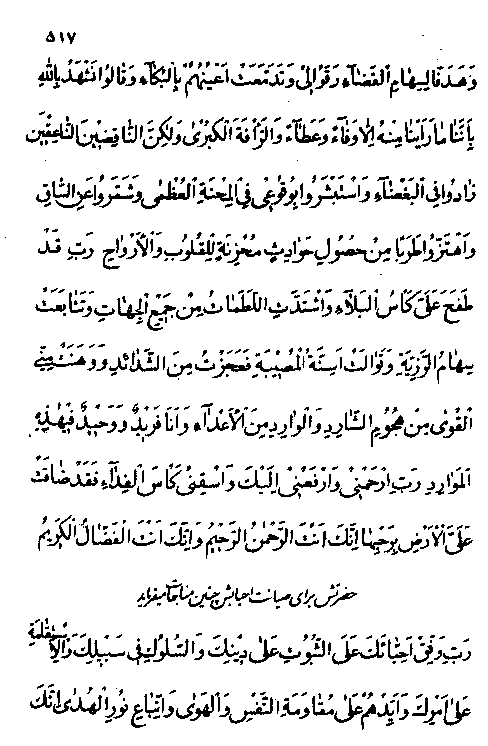 ٥١٧
وَهَدَفًا لِسِهَامِ ٱلْقَضَآءِ رَقَوْا لِیْ وَتَدَمَّعَتْ اَعْیُنُهُمْ بِالْبُكَآءِ وَقَالُوا نَشْهَدُ بِاللّٰهِ
بِاَنَّنَا مَا رَاَیْنَا مِنْهُ اِلَّا وَفَآءً وَعَطَآءً وَالرَّأْفَةَ الْكُبْرٰی وَلٰكِنَّ النَّاقِضِیْنَ النَّاعِقِیْنَ
زَادُوا فِی الْبَغْضَآءِ وَاسْتَبْشَرُوا بِوُقُوْعِیْ فِی الْمِحْنَةِ الْعُظْمٰی وَشَمَّرُوا عَنِ السَّاقِ
وَاهْتَزُّوا طَرَبًا مِنْ حُصُوْلِ حَوَادِثٍ مُحْزِنَةٍ لِلْقُلُوْبِ وَالْاَرْوَاحِ رَبِّ قَدْ
طَفَحَ عَلَیَّ كَأْسُ الْبَلَآءِ وَاشْتَدَّتِ اللَّطَمَاتُ مِنْ جَمِیْعِ الْجِهَاتِ وَتَتَابَعَتْ
سِهَامُ الرَّزِیَّةِ وَتَوَالَتْ اَسِنَّةُ الْمُصِیْبَةِ فَعَجَزْتُ مِنَ الشَّدَائِدِ وَوَهَنَتْ مِنِّی
الْقُوٰی مِنْ هُجُوْمِ الشَّارِدِ وَالْوَارِدِ مِنَ الْاَعْدَآءِ وَاَنَا فَرِیْدٌ وَوَحِیْدٌ فِیْ هٰذِهِ
الْمَوَارِدِ رَبِّ ارْحَمْنِیْ وَارْفَعْنِیْ اِلَیْكَ وَاسْقِنِیْ كَأْسَ الْفِدَآءِ فَقَدْ ضَاقَتْ
عَلَیَّ الْاَرْضُ بِرَحْبِهَا اِنَّكَ اَنْتَ الرَّحْمٰنُ الرَّحِیْمُ وَاِنَّكَ اَنْتَ الْفَضَّالُ الْكَرِیْمُ
حضرتش برای صیانت احبایش چنین مناجات میفرماید
رَبِّ وَفِّقْ اَحِبَّائَكَ عَلَی الثُّبُوْتِ عَلٰی دِیْنِكَ وَالسُّلُوْكِ فِیْ سَبِیْلِكَ وَالْاِسْتِقَامَةِ
عَلٰی اَمْرِكَ وَاَیِّدْهُمْ عَلٰی مُقَاوَمَةِ النَّفْسِ وَالْهَوٰی وَاتِّبَاعِ نُوْرِ الْهُدٰی اِنَّكَ